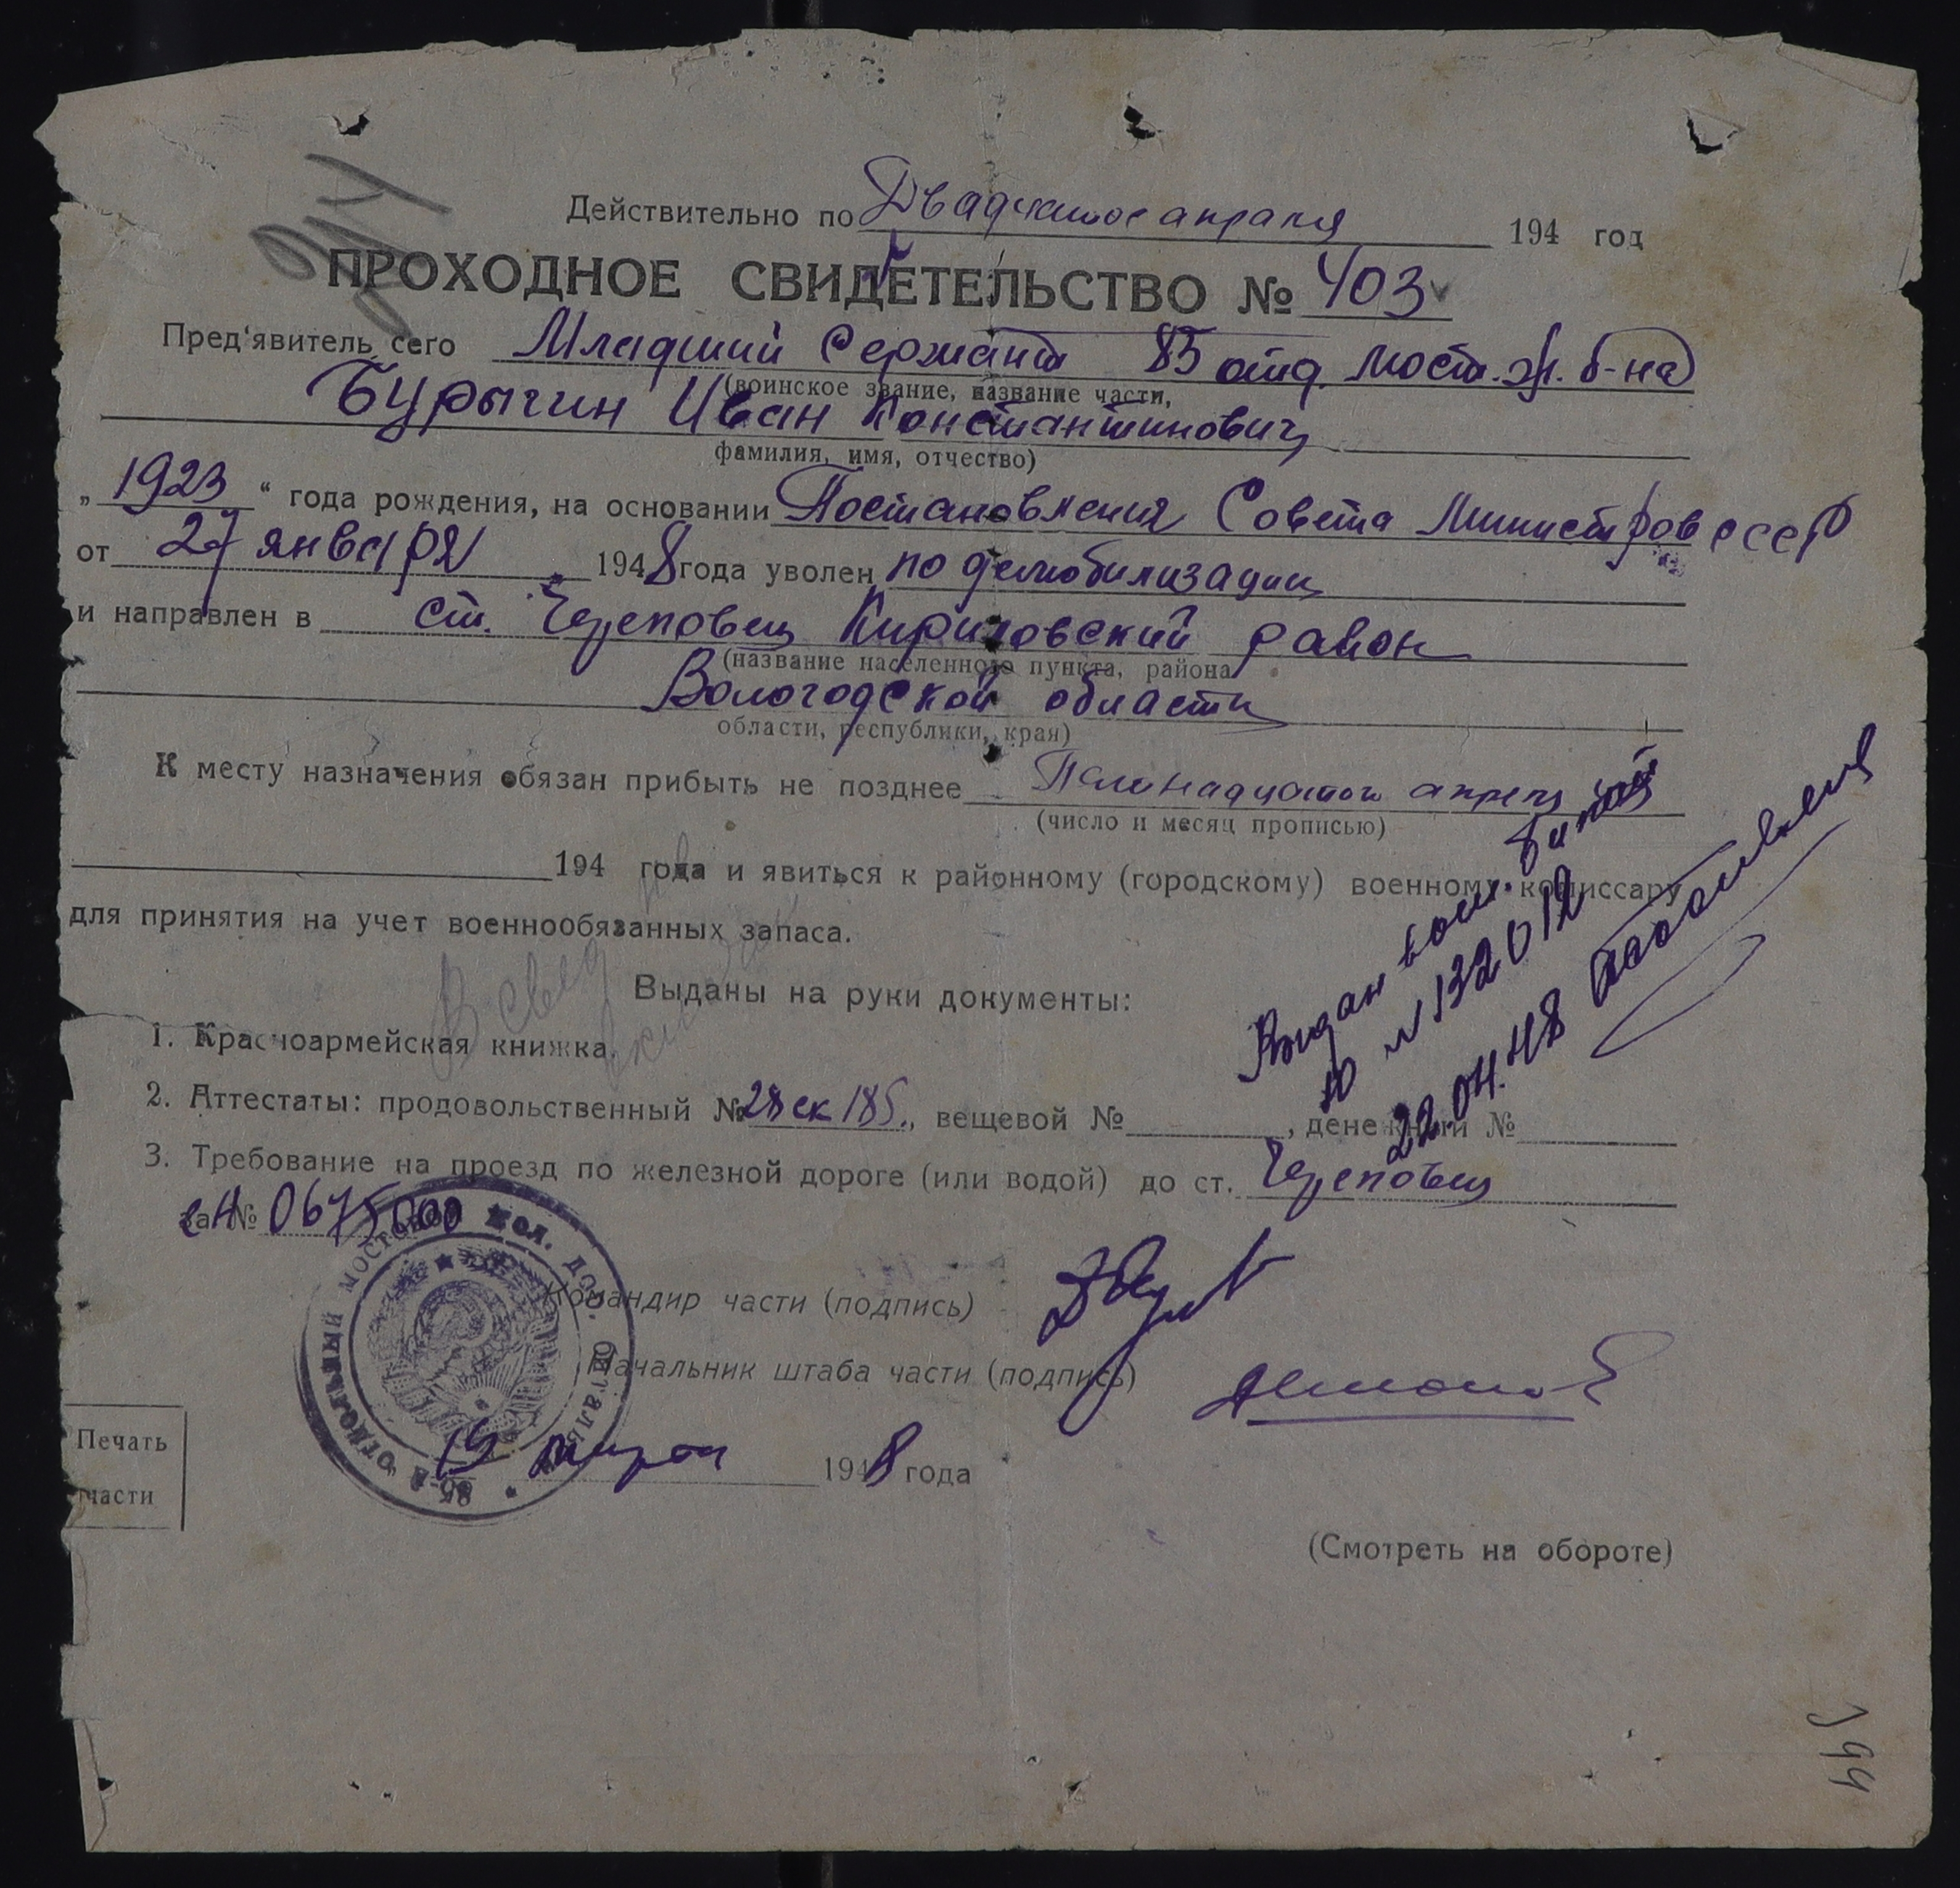 Действительно по Двадцатое апреля 194 год
ПРОХОДНОЕ СВИДЕТЕЛЬСТВО № 403
Пред'явитель сего Младший Сержант 85 отд. мост. ж. б-на
(воинское звание, название части,
Бурычин Иван Константинович
фамилия, имя, отчество)
„ 1923 “ года рождения, на основании Постановления Совета Министров СССР
от 27 января 1948 года уволен по демобилизации
и направлен в ст. Череповец Кириловский район
(название населенного пункта, района
Вологодской области
области, республики, края)
К месту назначения обязан прибыть не позднее апреля
(число и месяц прописью)
194 года и явиться к районному (городскому) военному комиссару
для принятия на учет военнообязанных запаса.
Выданы на руки документы:
1. Красноармейская книжка.
2. Аттестаты: продовольственный № 28 ск 185., вещевой № , денежный №
3. Требование на проезд по железной дороге (или водой) до ст. Череповец
за №
Выдан воен. билет
№ 132012
22.04.48
Командир части (подпись)
Начальник штаба части (подпись)
15 1948 года
85-й ОТДЕЛЬНЫЙ МОСТОВОЙ ЖЕЛ. ДОР. БАТАЛЬОН
Печать
части
(Смотреть на обороте)